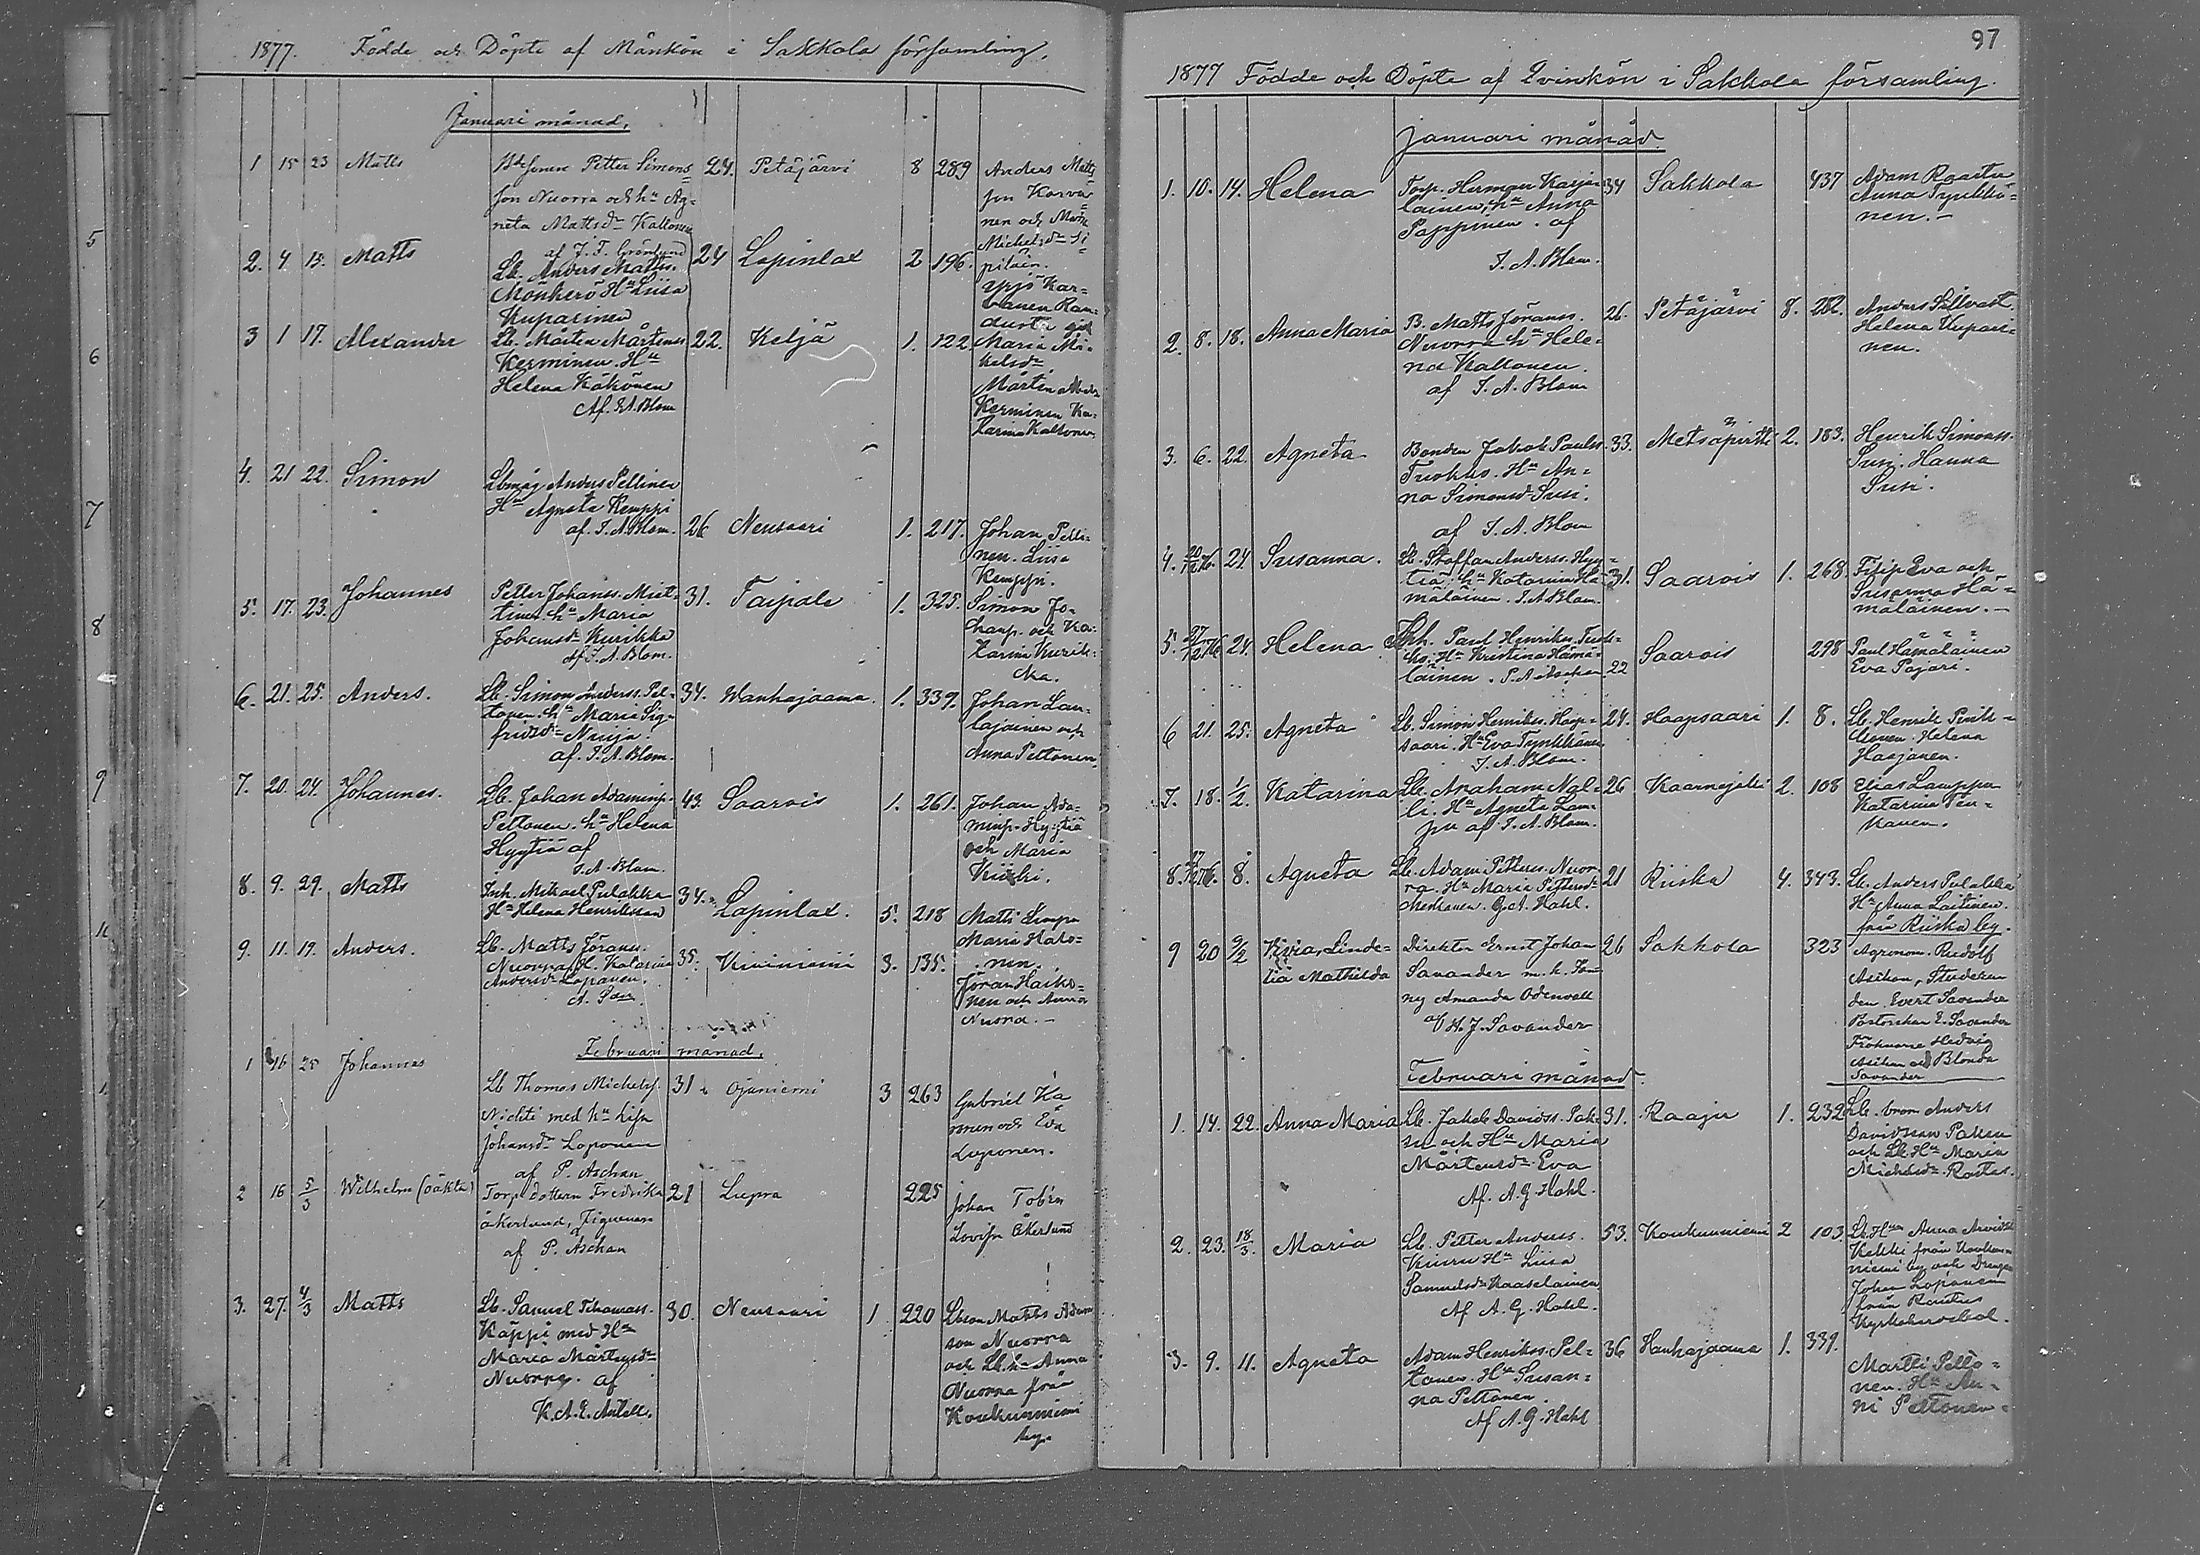 1877. Födde och Döpte af Mankön i Sakkola församling.
Januari månad.
1 15 23 Matts
Bdesonen Petter Simons=
son Nuorra och hu Ag=
neta Mattsdr Kaltonen
af J. F. Grönlund
24. Petäjärvi 8 289
Anders Matts
son Karvä=
nen och Maria
Michelsdr Si=
piläin.
2. 4 15. Matts
Lb. Anders Matts.
Mönkerö Hu Liisa
Kuparinen
24 Lapinlax 2 196.
Yrjö Kar=
vanen
3 1 17. Alexander
Lb. Mårten Mårtens
Kerminen. Hu
Helena Käkönen
Af. I. A. Blom
22. Keljä 1. 122
Maria Mi=
kelsdr
Mårten
Kerminen Ka=
tarina Kaltonen
4. 21 22. Simon
Lbmåg Anders Pellinen
Hu Agneta Kemppi
af. I. A. Blom.
26 Neusaari 1. 217.
Johan Pelli=
nen. Liisa
Kemppi.
5. 17. 23. Johannes
Petter Johanss. Miet=
tinen. hu Maria
Johansdr Kurikka
Af I. A. Blom.
31. Taipale 1. 325.
Simon Jo=
hansp. och Ka=
tarina Kurik=
ka.
6. 21. 25. Anders.
Lb. Simon Anderss. Pel=
tonen. hu Maria Sig=
fridsdr Nuija.
af. I. A. Blom.
34. Wanhajaama. 1. 339.
Johan Lau=
lajainen och
Anna Peltonen.
7. 20. 24. Johannes.
Lb. Johan Adaminp.
Peltonen. hu Helena
Hyytiä af
I. A. Blom.
43. Saarois 1. 261.
Johan Ada=
minp. Hyytiä
och Maria
Kiuki.
8. 9. 29. Matts
Inh. Mikael Pulakka
Hu Helena Henriksson
34. Lapinlax. 5. 218
Matti Limpu
Maria Hato=
nen.
9. 11. 19. Anders.
Lb. Matts Jörans.
Nuorra H. Katarina
Andersdr Loponen.
35. Viiniemi 3. 135.
Jöran Haiko=
nen och Anna
Nuora. -
Februari månad.
1 16 25 Johannes
Lb Thomas Michelsp.
Nichti med hu Lisa
Johansdr Loponen
af P. Aschan
31 Ojaniemi 3 263
Gabriel Ka
nnen och Eva
Luponen.
2 16 5/3 Wilhelm (oäkta)
Torp dottern Fredrika
Åkerlund,
af P. Aschan
21 Lupra 225
Johan Tobin
Lovisa Åkerlund
3. 27. 4/3 Matts
Lb. Samuel Thomass.
Käppi med Hu
Maria Mårtensdr
Nuorra. af
K. A. E. Antell.
30. Neusaari 1 220
Lbson Matts Adam
son Nuorra
och Lb. h= Anna
Nuorra från
Koukunniemi
by.
97
1877 Födde och Döpte af Qvinkön i Sakkola församling.
Januari månad.
1. 10. 14. Helena
Torp. Herman Karja=
lainen, hu Anna
Pappinen. af
I. A. Blom.
34 Sakkola 437
Adam Raasta
Anna Tynkkö=
nen. -
2. 8. 18. Anna Maria
B. Matts Jöranss.
Nuorra hu Hele=
na Kaltonen.
af I. A. Blom
26. Petäjärvi 8. 282.
Anders Sillvast.
Helena Kupari=
nen.
3. 6. 22. Agneta
Bonden Jakob Paulss.
Tuokko. Hu An=
na Simonsdr Susi.
af I. A. Blom
33. Metsäpirtti 2. 183.
Henrik Simonss.
Susi. Hanna
Susi.
4. 20/12 76. 24. Susanna.
Lb. Staffan Anderss. Hyy=
tiä. hu Katarina Hä=
mäläinen. I. A. Blom.
31. Saarois 1. 268.
Filip Eva och
Susanna Hä=
mäläinen. -
5. 27/12 76 24. Helena
Inh. Paul Henriksson Tuok=
ko. Hu Kristina Hämä=
läinen. P. A Aschan
22 Saarois 298
Paul Hämäläinen
Eva Pajari.
6 21. 25. Agneta
Lb. Simon Henrikss. Haap=
saari. Hu Eva Tynkkönen
I. A. Blom.
24. Haapsaari 1. 8.
Lb. Henrik
Helena
Haajanen.
7. 18. 1/2. Katarina
Lb. Araham Nal=
li. Hu Agneta Lam=
pu af I. A. Blom.
26 Kaarnajoki 2. 108
Elias Lamppu
Katarina Pen=
nanen.
8. 27/12 76. 8. Agneta
Lb. Adam Petterss. Nuor=
ra. Hu Maria Pettersdr
A. Hahl.
21 Riiska 4. 343.
Lb. Anders Pulakka
Hu Anna Laitinen.
från Riiska by.
9 20 9/2 Linde=
lia Mathilda
Direktor Ernst Johan
Savander m. h. Fan=
ny Amanda Odenvall
af H. J. Savander
26 Sakkola 323
Agronom. Rudolf
Aschan, Studeran
den Evert Savander
Pastorskan E. Savander
Fröknarne Hedvig
Aschan och Blonda
Savander
Februari månad.
1. 14. 22. Anna Maria
Lb. Jakob Davidss. Pak=
su och Hu Maria
Mårtensdr Eva
Af. A. G Hahl.
31. Raaju 1. 232
Lb. bron Anders
Davidsson Paksu
och Lb. Hu Maria
Michelsdr Rastas.
2. 23. 18/3. Maria
Lb. Petter Anderss.
Kiuru Hu Liisa
Samuelsdr Kaasalainen
Af A. G. Hahl.
53. Koukunniemi 2 103
Lb. Hu Anna Arvidsdr
Kekki från Koukun=
niemi by och Drengen
Johan Loponen
från Rautus
Kyrkobovebol.
3. 9. 11. Agneta
Adam Henrikss. Pel=
tonen. Hu Susan=
na Peltonen.
Af A. G. Hahl
36 Hanhajaama 1. 339.
Martti Pelto=
nen. Hu An=
ni Peltonen.
5
6
7
8
9
11